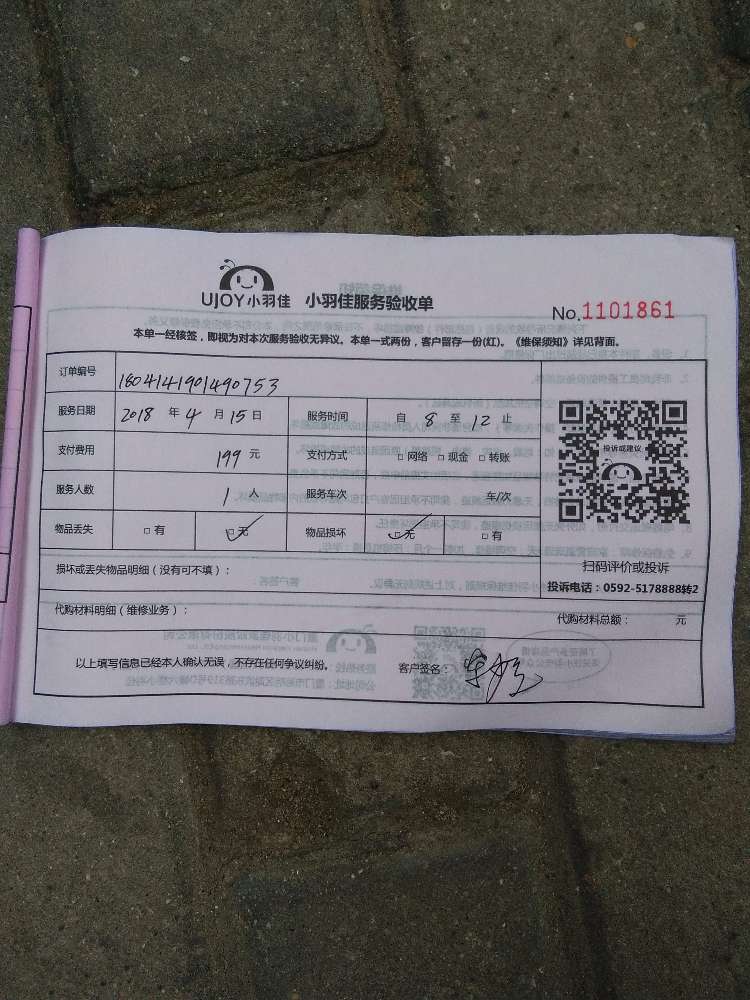 UJOY小羽佳 小羽佳服务验收单
No.1101861
本单一经核签，即视为对本次服务验收无异议。本单一式两份，客户留存一份(红)。《维保须知》详见背面。
订单编号 1804141901490753
服务日期 2018 年 4 月 15 日 服务时间 自 8 至 12 止
支付费用 199 元 支付方式 □ 网络 □ 现金 □ 转账
服务人数 1 人 服务车次 车/次
物品丢失 □ 有 □ 无 物品损坏 □ 无 □ 有
投诉或建议
扫码评价或投诉
投诉电话：0592-5178888转2
损坏或丢失物品明细（没有可不填）：
代购材料明细（维修业务）： 代购材料总额： 元
以上填写信息已经本人确认无误，不存在任何争议纠纷。 客户签名：